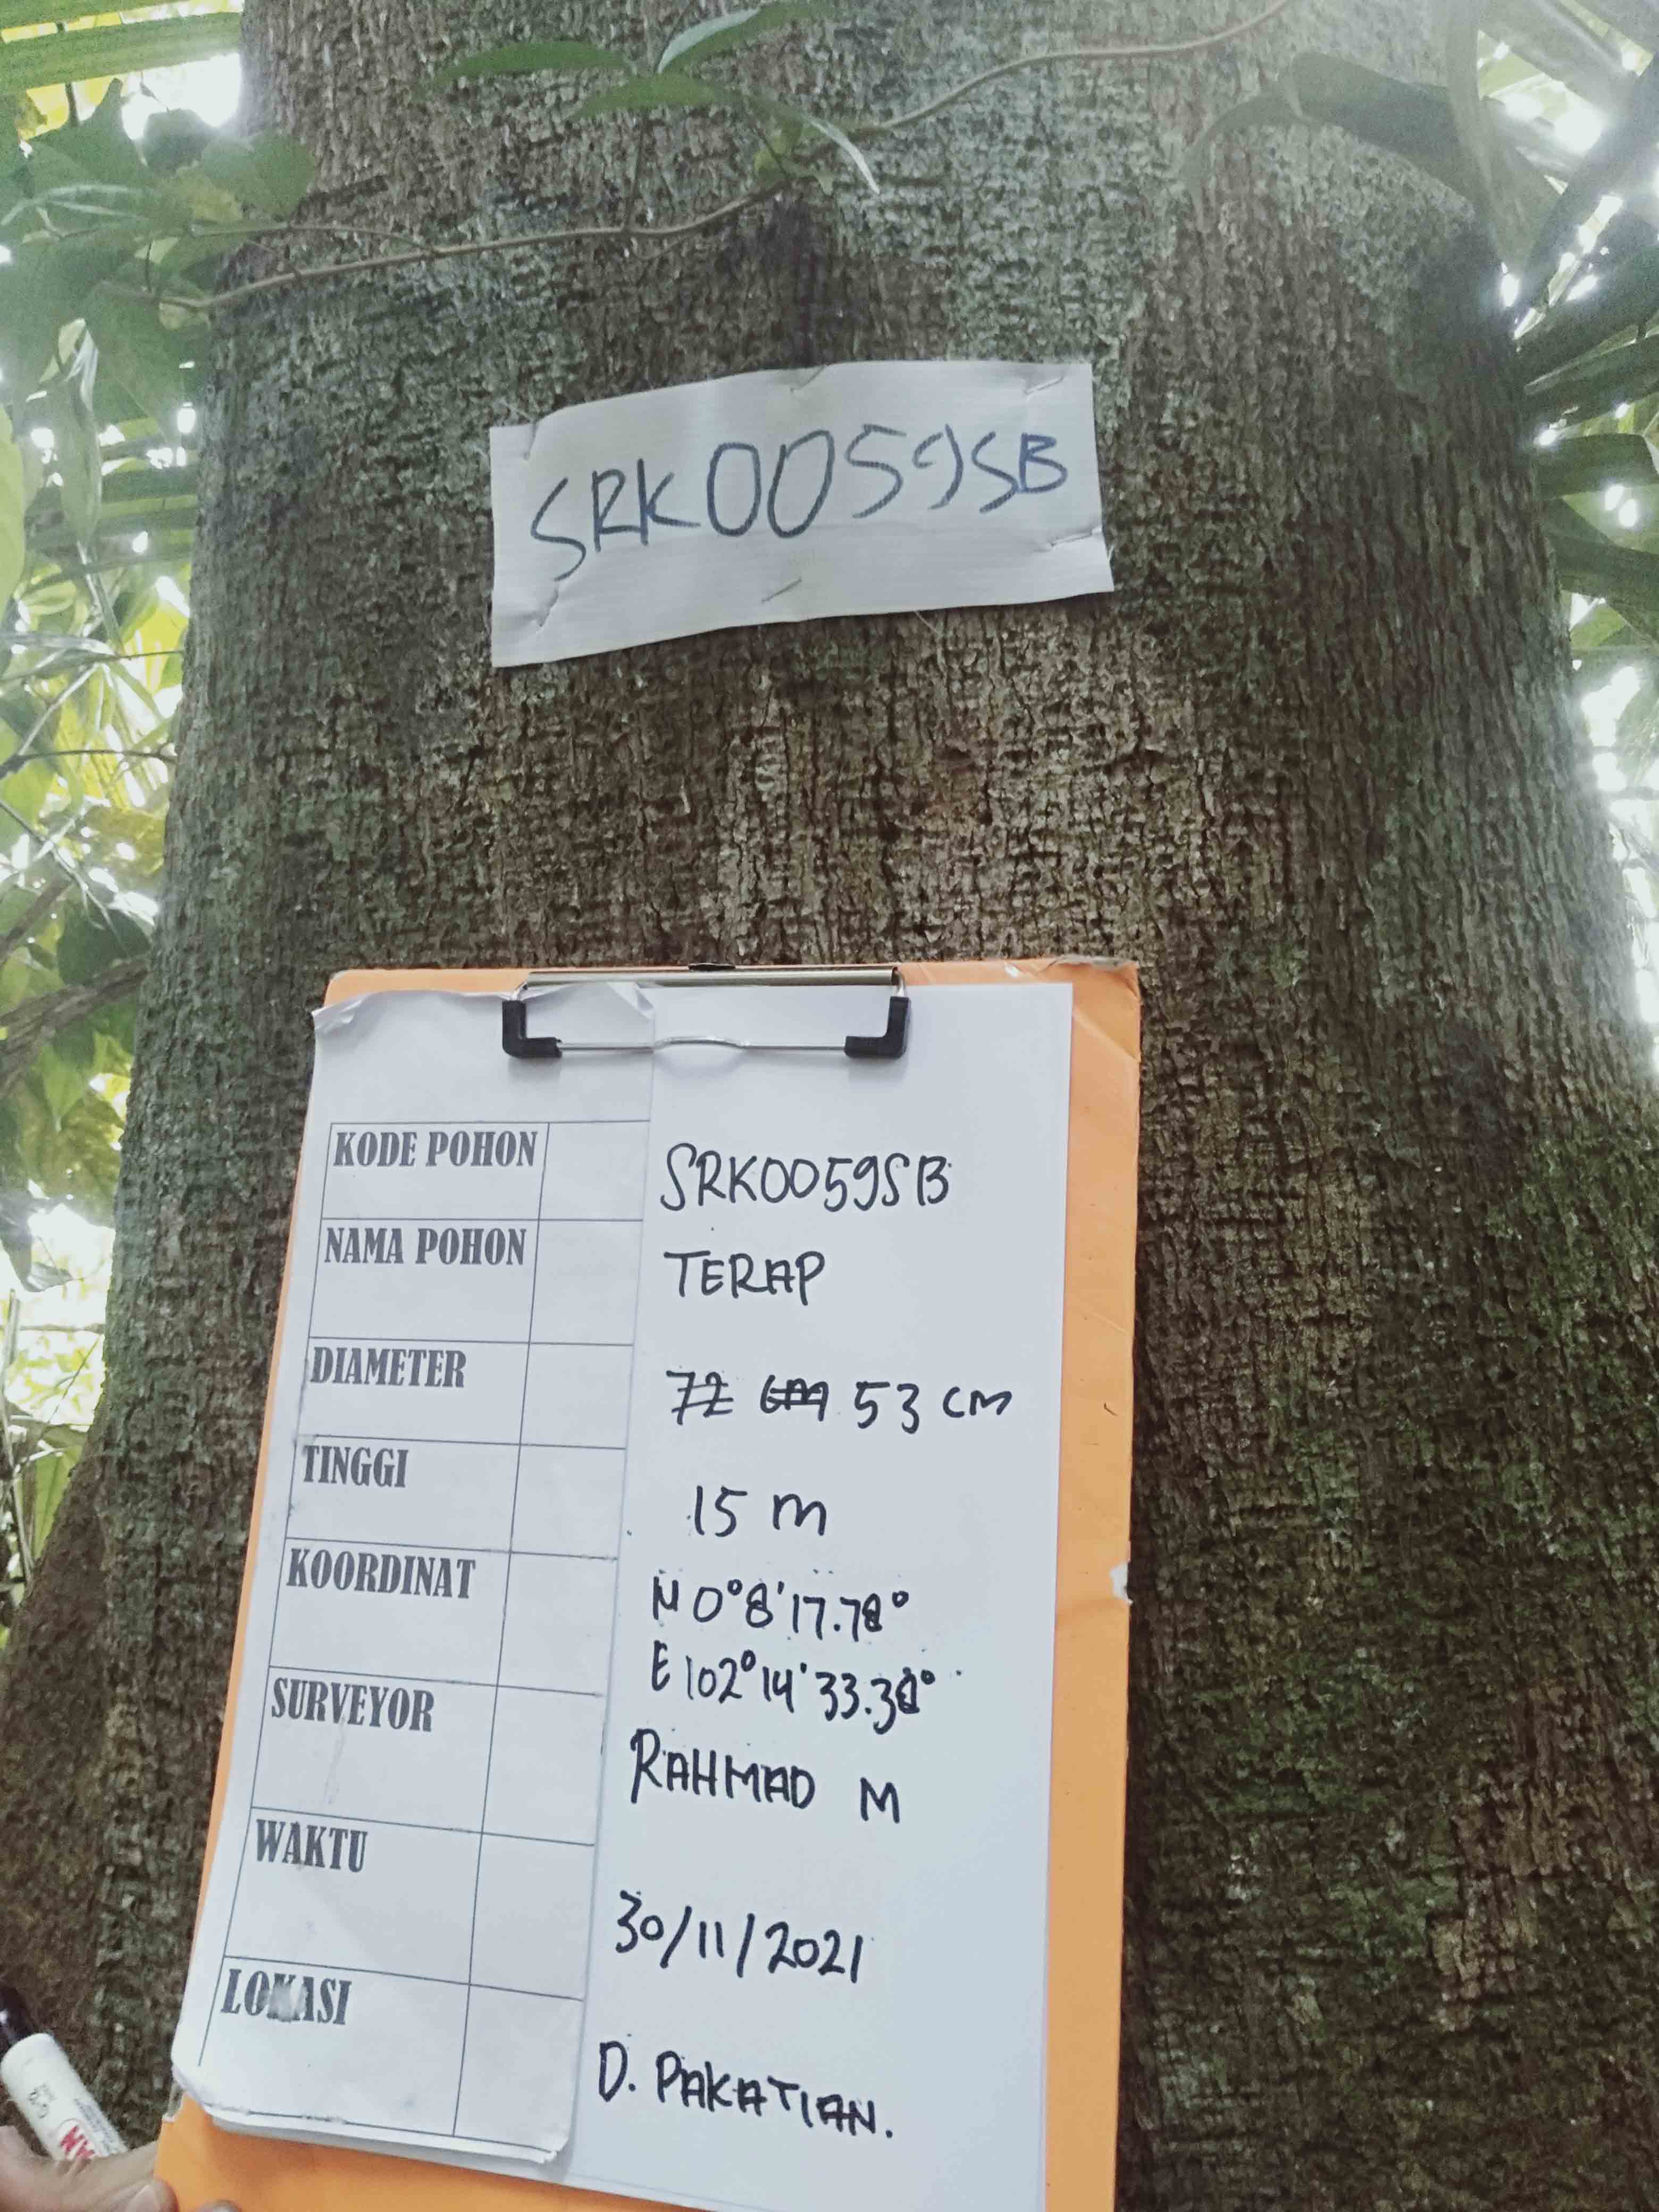 SRK0059SB
KODE POHON SRK0059SB
NAMA POHON TERAP
DIAMETER 72 cm 53 cm
TINGGI 15 m
KOORDINAT N 0°8'17.78°
E 102°14'33.38°
SURVEYOR RAHMAD M
WAKTU 30/11/2021
LOKASI D. PAKATIAN.